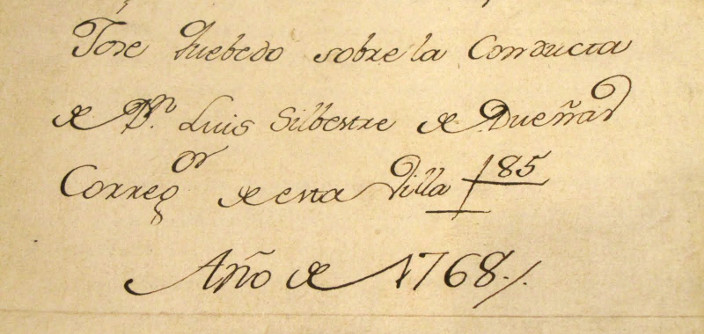 Jose Quebedo sobre la Conducta
de Dn. Luis Silbestre de Dueñas
Corregor de esta Villa 85
Año de 1768.